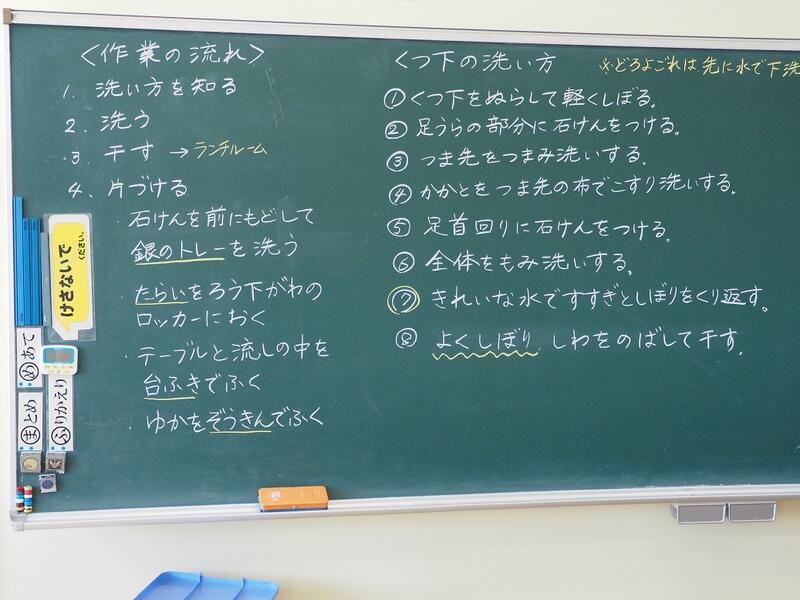 〈作業の流れ〉
1. 洗い方を知る
2. 洗う
3. 干す → ランチルーム
4. 片づける
・石けんを前にもどして
銀のトレーを洗う
・たらいをろう下がわの
ロッカーにおく
・テーブルと流しの中を
台ふきでふく
・ゆかをぞうきんでふく
〈つ下の洗い方
※どろよごれは先に水で下洗
①くつ下をぬらして軽くしぼる。
②足うらの部分に石けんをつける。
③つま先をつまみ洗いする。
④かかとをつま先の布でこすり洗いする。
⑤足首回りに石けんをつける。
⑥全体をもみ洗いする。
⑦きれいな水ですすぎとしぼりをくり返す。
⑧よくしぼり、しわをのばして干す。
けさないで
ください。
めあて
まとめ
ふりかえり